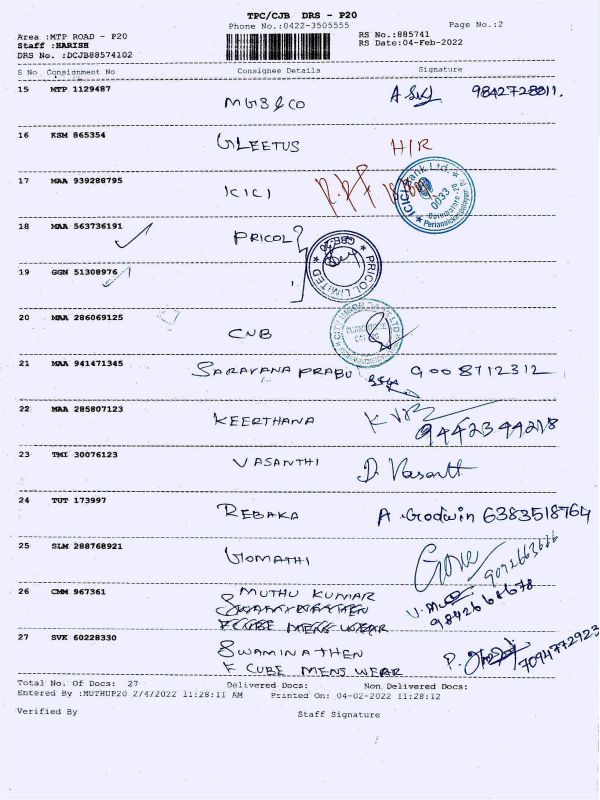 TPC/CJB DRS - P20
Phone No.:0422-3505555
Page No.:2
Area :MTP ROAD - P20
Staff :HARISH
DRS No. :DCJB88574102
RS No.:885741
RS Date:04-Feb-2022
S No Consignment No Consignee Details Signature
15 MTP 1129487 MGS & CO 9842728811.
16 KSM 865354 GLEETUS H/R
17 MAA 939288795 ICICI
ICICI Bank Ltd. 0033 Coimbatore-20
18 MAA 563736191 PRICOL
19 GGN 51308976
PRICOL LIMITED CBE-20
20 MAA 286069125 CUB
CITY UNION BANK LTD
21 MAA 941471345 SARAVANA PRABU 9008712312
22 MAA 285807123 KEERTHANA 9442344218
23 TMI 30076123 VASANTHI D. Vasanth
24 TUT 173997 REBAKA A. Godwin 6383518764
25 SLM 288768921 GOMATHI
26 CMM 967361 MUTHU KUMAR 9842668678
F CUBE MENS WEAR
27 SVK 60228330 SWAMINATHEN 7094772923
F CUBE MENS WEAR
Total No. Of Docs: 27 Delivered Docs: Non Delivered Docs:
Entered By :MUTHUP20 2/4/2022 11:28:11 AM Printed On: 04-02-2022 11:28:12
Verified By Staff Signature